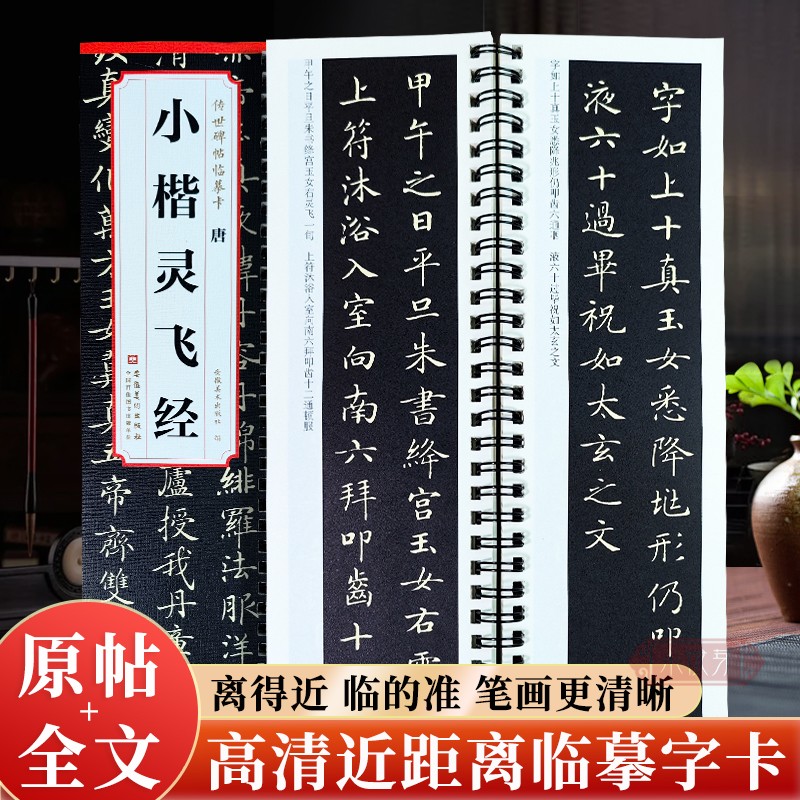 传世碑帖临摹卡
唐
小楷灵飞经
安徽美术出版社 编
安徽美术出版社
帝齋雙
廬授我丹
緋羅法服洋
甲午之日平旦朱书绛宫玉女右灵飞一旬 上符沐浴入室向南六拜叩齿十二通
甲午之日平旦朱書絳宫玉女右
上符沐浴入室向南六拜叩齒十
字如上十真玉女悉降兆形仍叩齿六通 液六十过毕祝如太玄之文
字如上十真玉女悉降𡉏形仍叩
液六十過畢祝如太玄之文
原帖
+
全文
离得近 临的准 笔画更清晰
高清近距离临摹字卡